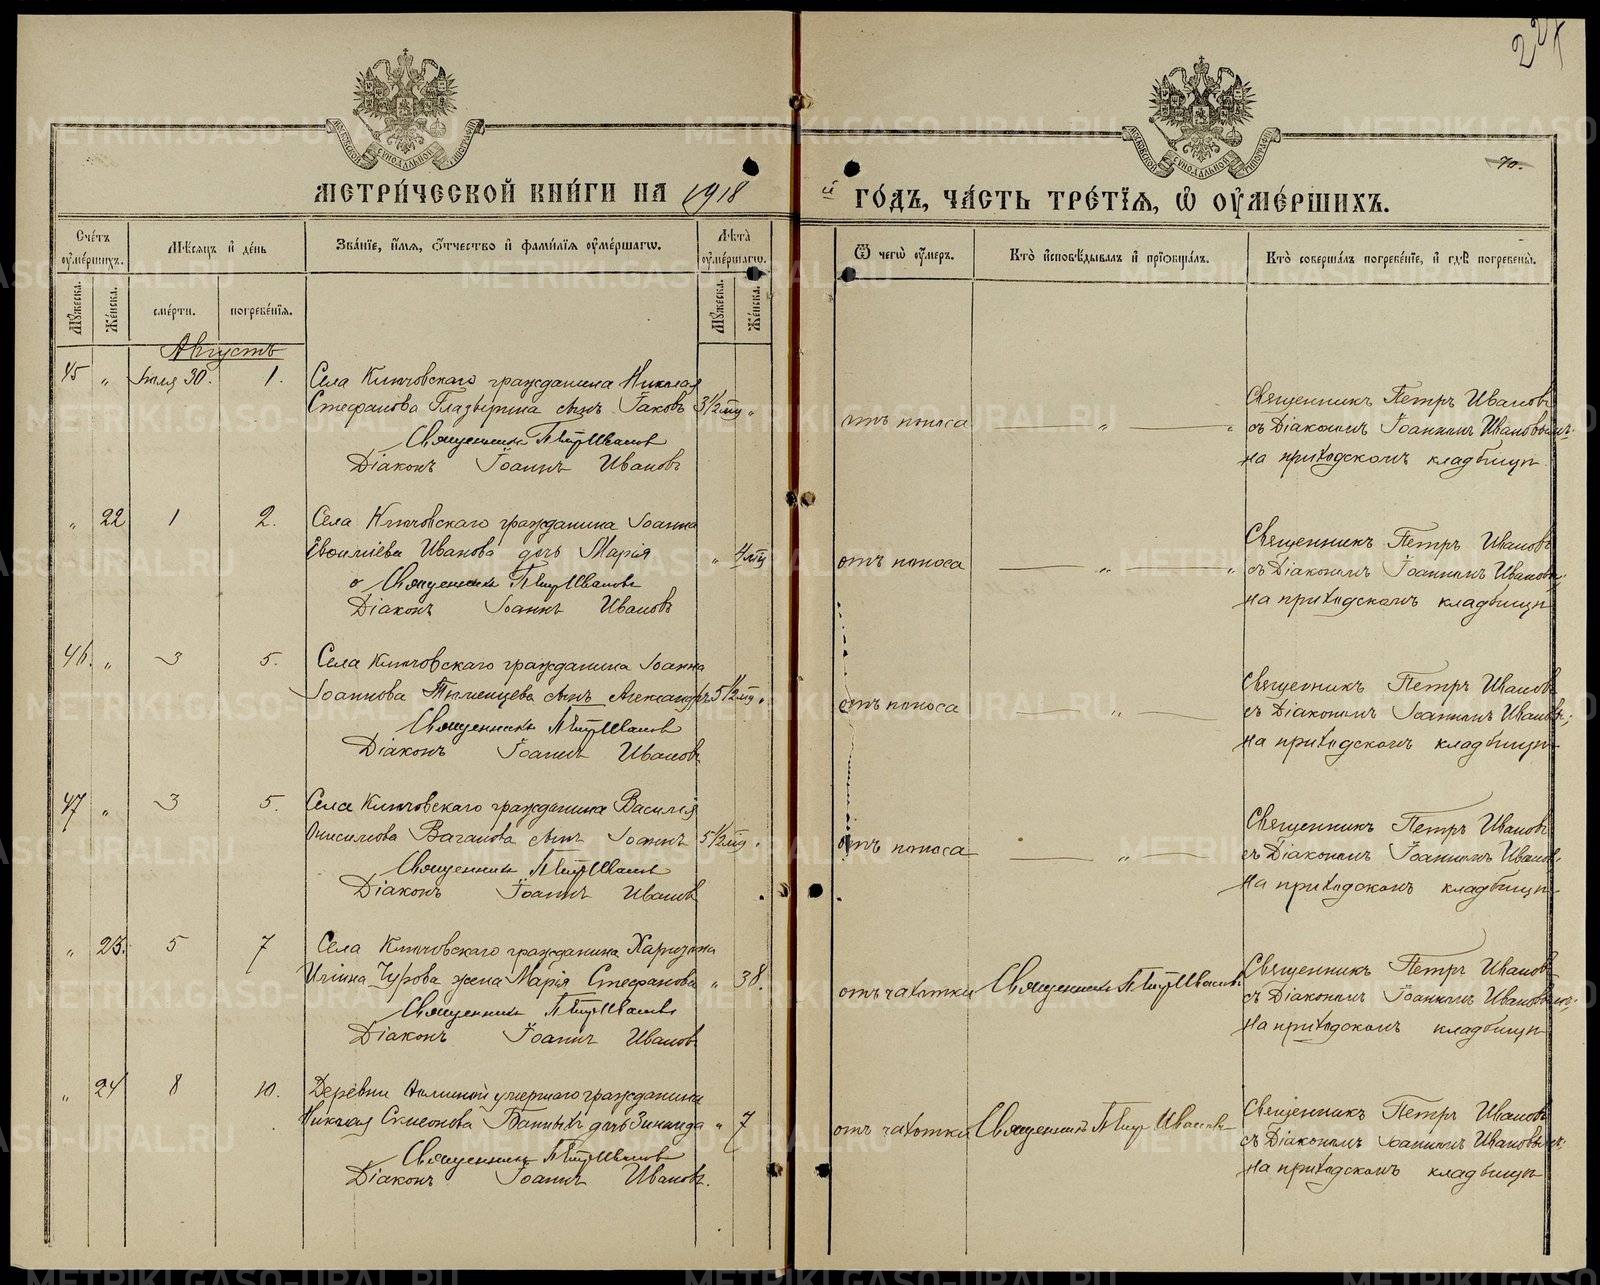 227
70.
МОСКОВСКОЙ СѴНОДАЛЬНОЙ ТИПОГРАФІИ
МОСКОВСКОЙ СѴНОДАЛЬНОЙ ТИПОГРАФІИ
МЕТРИ́ЧЕСКОЙ КНИ́ГИ НА 1918
й ГО́ДЪ, ЧА́СТЬ ТРЕ́ТЇѦ, Ѡ҆ ОУ҆МЕ́РШИХЪ.
Счéтъ оумéршихъ.
Мѣ́сяцъ и дéнь
Звáнїе, и́мя, ѻ́тчество и фами́лїя оумéршагѡ.
Лѣ́та оумéршагѡ.
Ѿ чегѡ̀ оу́меръ.
Ктò исповѣ́дывалъ и прїѡбщáлъ.
Ктò совершáлъ погребéнїе, и гдѣ̀ погребены̀.
Мꙋ́жеска.
Жéнска.
смéрти.
погребéнїя.
Мꙋ́жеска.
Жéнска.
Августъ
45 " Іюля 30. 1. Села Ключовскаго гражданина Николая
Стефанова Глазырина сынъ Іаковъ 3 1/2 мц "
Священникъ Петръ Ивановъ
Діаконъ Іоаннъ Ивановъ
отъ поноса " "
Священникъ Петръ Ивановъ
съ Діакономъ Іоанномъ Ивановымъ
на приходскомъ кладбищѣ
" 22 1 2. Села Ключовскаго гражданина Іоанна
Иванова дочь Марія " 4 мц
Священникъ Петръ Ивановъ
Діаконъ Іоаннъ Ивановъ
отъ поноса " "
Священникъ Петръ Ивановъ
съ Діакономъ Іоанномъ Ивановымъ
на приходскомъ кладбищѣ
46. " 3 5. Села Ключовскаго гражданина Іоанна
Іоаннова Тюменцева сынъ Александръ 5 1/2 мц "
Священникъ Петръ Ивановъ
Діаконъ Іоаннъ Ивановъ
отъ поноса "
Священникъ Петръ Ивановъ
съ Діакономъ Іоанномъ Ивановымъ;
на приходскомъ кладбищѣ
47 " 3 5. Села Ключовскаго гражданина Василія
Онисимова Ваганова сынъ Іоаннъ 5 1/2 мц "
Священникъ Петръ Ивановъ
Діаконъ Іоаннъ Ивановъ
отъ поноса "
Священникъ Петръ Ивановъ
съ Діакономъ Іоанномъ Ивановымъ
на приходскомъ кладбищѣ
" 23. 5 7 Села Ключовскаго гражданина Харитона
Иліина Чурова жена Марія Стефанова " 38.
Священникъ Петръ Ивановъ
Діаконъ Іоаннъ Ивановъ
отъ чахотки Священникъ Петръ Ивановъ
Священникъ Петръ Ивановъ
съ Діакономъ Іоанномъ Ивановымъ;
на приходскомъ кладбищѣ
" 24 8 10. Деревни умершаго гражданина
Николая Банныхъ дочь Зинаида " 7
Священникъ Петръ Ивановъ
Діаконъ Іоаннъ Ивановъ.
отъ чахотки Священникъ Петръ Ивановъ
Священникъ Петръ Ивановъ
съ Діакономъ Іоанномъ Ивановымъ;
на приходскомъ кладбищѣ
METRIKI.GASO-URAL.RU